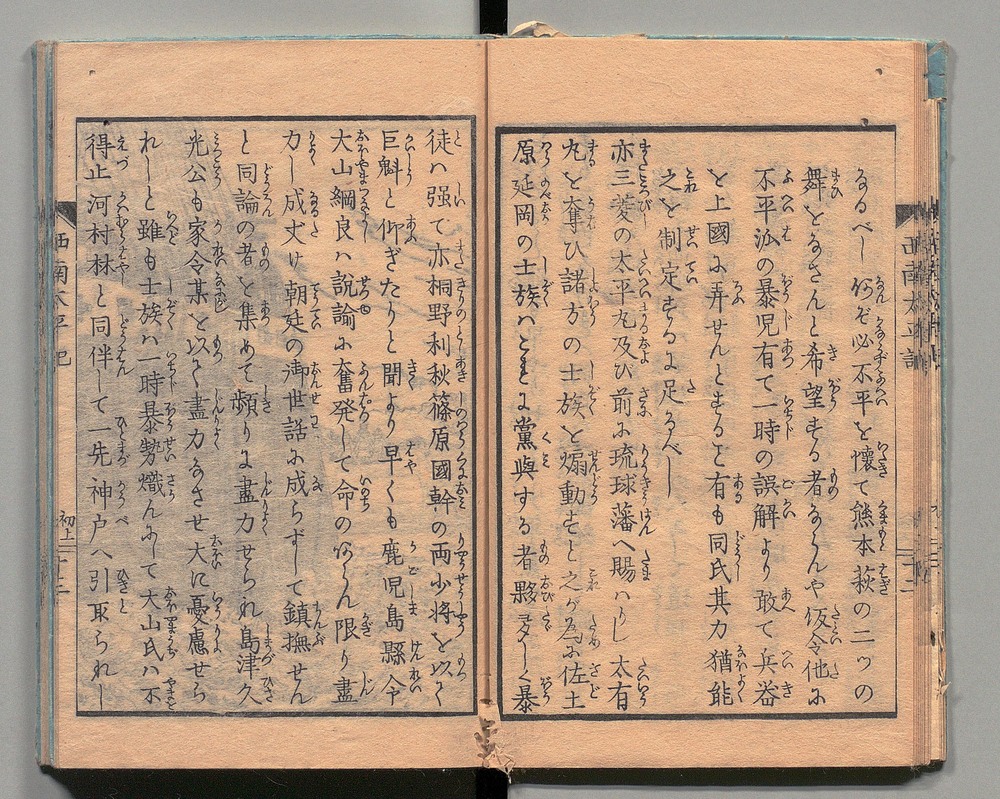 なるべし何ぞ必不平を懐て熊本萩の二ツの
舞をなさんと希望する者ならんや仮令他に
不平泒の暴児有て一時の誤解より敢て兵器
を上國に弄せんとすると有も同氏其力猶能
之を制定するに足るべし
亦三菱の太平丸及び前に琉球藩へ賜ハりし太有
丸を奪ひ諸方の士族を煽動すと之が為に佐土
原延岡の士族ハことに黨與する者夥多しく暴
徒ハ强て亦桐野利秋篠原國幹の両少將を以て
巨魁と仰ぎたりと聞より早くも鹿児島縣令
大山綱良ハ説諭に奮発して命のあらん限り盡
力し成丈け朝廷の御世話に成らずして鎮撫せん
と同論の者を集めて頻りに盡力せられ島津久
光公も家令某を以て盡力なさせ大に憂慮せら
れしと雖も士族ハ一時暴勢熾んにして大山氏ハ不
得止河村林と同伴して一先神戸へ引取られし
西南太平記
初上